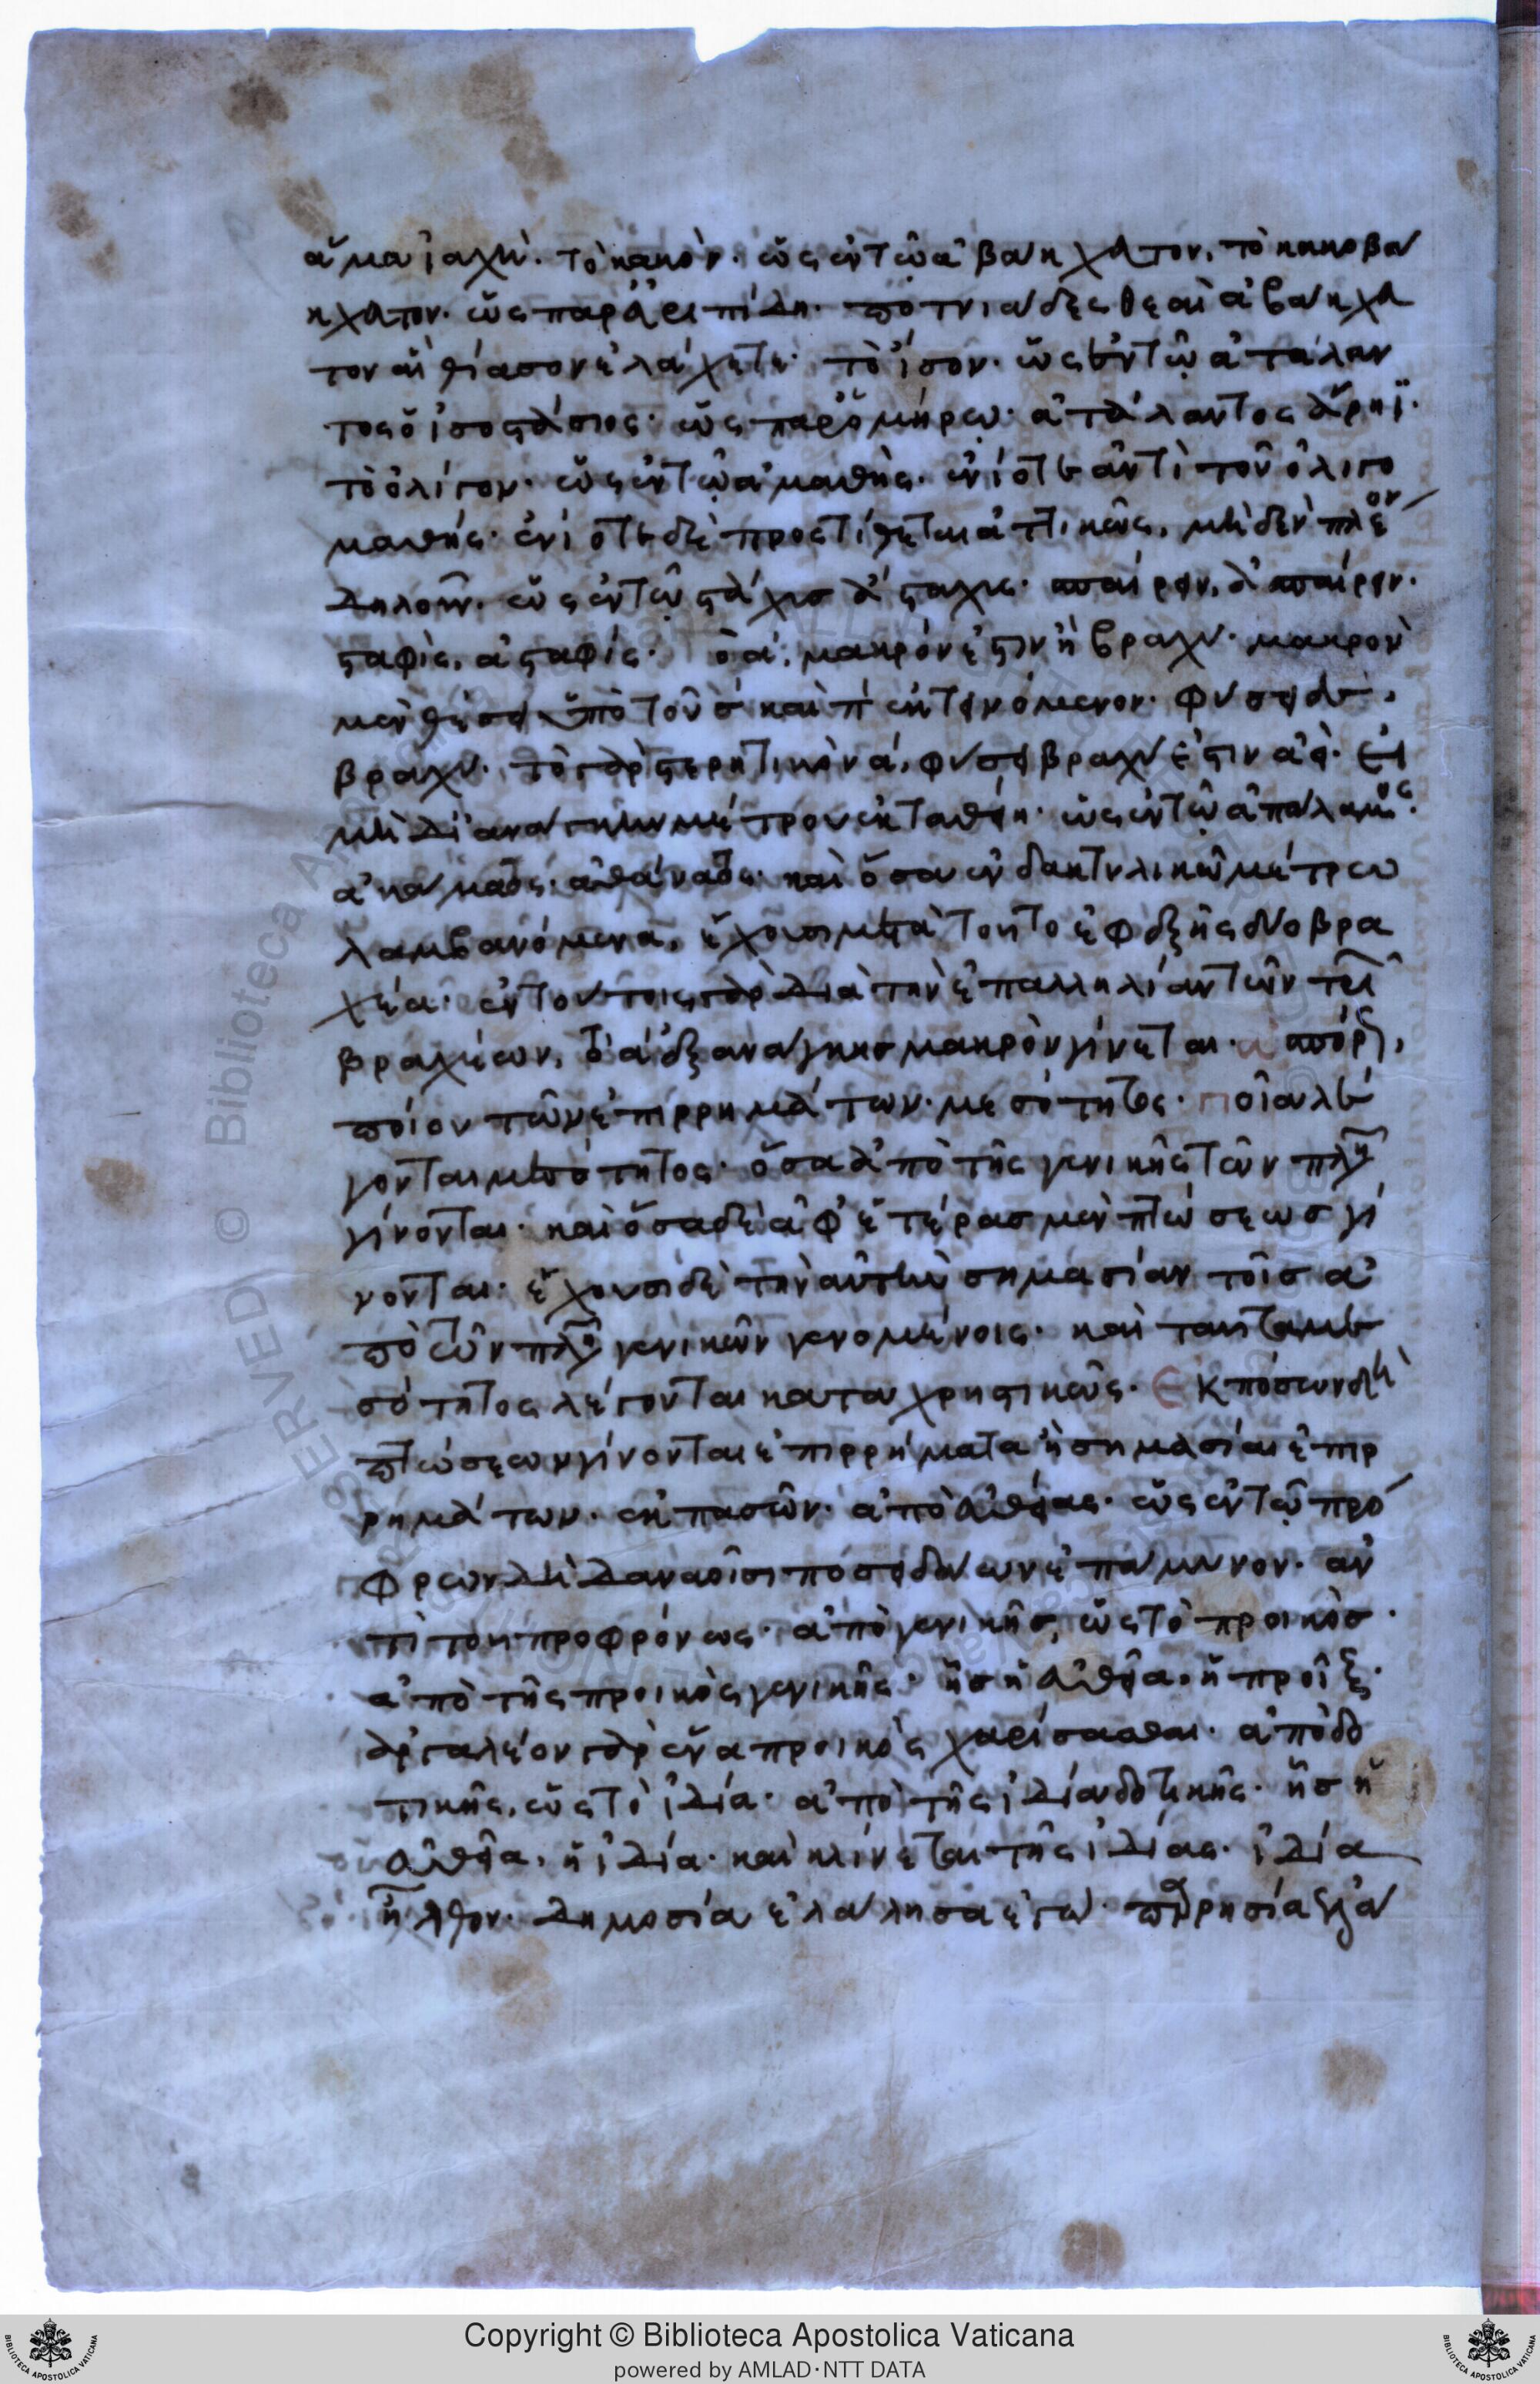 ἅμα ἰαχή. τὸ κακόν. ὡς ἐν τῶ ἀβακχατον, τὸ κακοβα
κχατον. ὡς παρ' Εὐριπίδη. ποτνιάδες θεαὶ ἀβακχα
τον αἳ θίασον ἐλάχετε. τὸ ἴσον. ὡς ἐν τῶ ἀτάλαν
τος ὁ ἰσοστάσιος. ὡς παρ' Ὁμήρω. ἀτάλαντος ἄρηϊ.
τὸ ὀλίγον. ὡς ἐν τῶ ἀμαθής. ἐνίοτε ἀντὶ τοῦ ὀλιγο
μαθής. ἐνίοτε δὲ προστίθεται ἀττικῶς, μηδὲν πλέον
δηλοῦν. ὡς ἐν τῶ στάχυσ ἄσταχυς. σπαίρειν, ἀσπαίρειν.
σταφίς, ἀσταφίς. τὸ ᾱ, μακρόν ἐστιν ἢ βραχύ. μακρὸν
μὲν θέσει ὑπὸ τοῦ σ καὶ π ἐκτεινόμενον. φύσει δὲ,
βραχύ. τὸ γὰρ στερητικὸν ᾱ, φύσει βραχύ ἐστιν ἀεί. εἰ
μὴ δι' ἀνάγκην μέτρου ἐκταθείη. ὡς ἐν τῶ ἀπάλαμος.
ἀκάματος. ἀθάνατος. καὶ ὅσα ἐν δακτυλικῶ μέτρω
λαμβανόμενα, ἔχουσι μετὰ τοῦτο ἐφεξῆς δύο βρα
χέα. ἐν τούτοις γὰρ διὰ τὴν ἐπαλληλίαν τῶν
βραχέων, τὸ ᾱ ἐξ ἀνάγκησ μακρὸν γίνεται.
ποῖον τῶν ἐπιρρημάτων. μεσότητος. ποῖα λέ
γονται μεσότητος. ὅσα ἀπὸ τῆς γενικῆς τῶν πλη
γίνονται. καὶ ὅσα δὲ ἀφ' ἑτέρασ μὲν πτώσεωσ γί
νονται. ἔχουσι δὲ τὴν αὐτὴν σημασίαν τοῖσ ἀ
πὸ τῶν πλη γενικῶν γενομένοις. καὶ ταῦτα με
σότητος λέγονται καταχρηστικῶς. Ἐκ πόσων δὲ
πτώσεων γίνονται ἐπιρρήματα ἢ σημασίαι ἐπιρ
ρημάτων. ἐκ πασῶν. ἀπὸ εὐθείας. ὡς ἐν τῶ πρό
φρων δὴ Δαναοῖσι ποσείδαων ἐπάμυνον. ἀν
τὶ τοῦ προφρόνως. ἀπὸ γενικῆσ, ὡς τὸ προικόσ.
ἀπὸ τῆς προικὸς γενικῆς. ἧσ ἡ εὐθεῖα, ἡ προῖξ.
ἀργαλέον γὰρ ἕνα προικὸς χαρίσασθαι. ἀπὸ δο
τικῆς, ὡς τὸ ἰδία. ἀπὸ τῆς ἰδία δοτικῆς. ἧσ ἡ
εὐθεῖα, ἡ ἰδία. καὶ κλίνεται τῆς ἰδίας. ἰδία
ἦλθον. δημοσία ἐλάλησα ἐγὼ. παρρησία